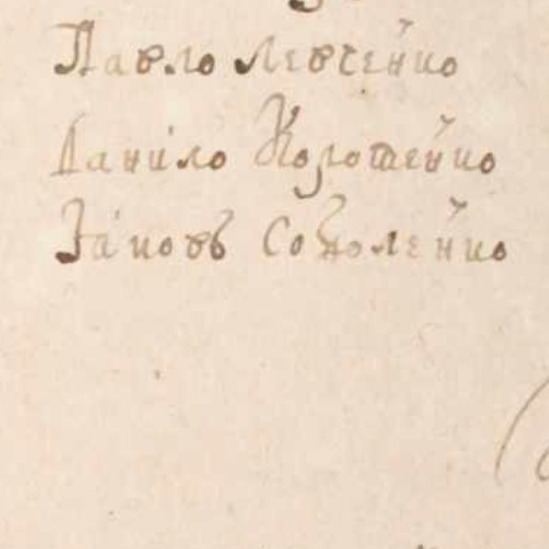 Павло Левченко
Данило Колошенко
Іаковъ Соболенко